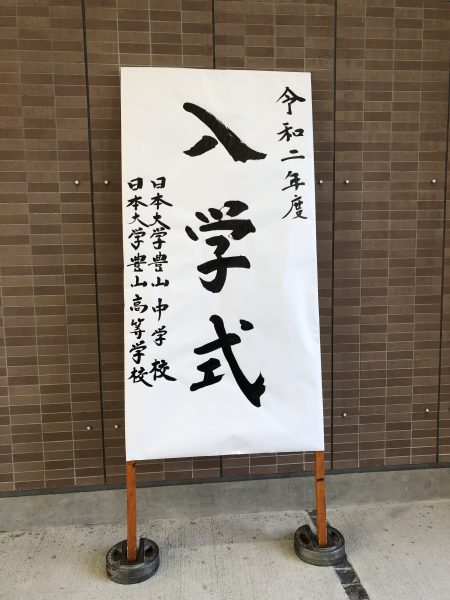 令和二年度
入学式
日本大学豊山中学校
日本大学豊山高等学校